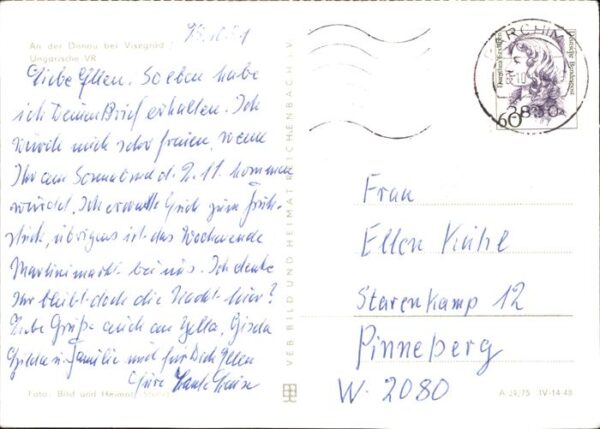 An der Donau bei Visegrád
Ungarische VR
Liebe Ellen. Soeben habe
ich Deinen Brief erhalten. Ich
würde mich sehr freuen, wenn
Ihr am Sonnabend d. 2.11. kommen
würdet. Ich erwarte Euch zum Früh-
stück, übrigens ist das Wochenende
Martinimarkt bei uns. Ich denke
Ihr bleibt doch die Nacht hier?
Liebe Grüße auch an Gisela
u. Familie und für Dich Ellen
Eure Tante
Foto: Bild und Heimat
VEB BILD UND HEIMAT REICHENBACH i.V.
PARCHIM
Deutsche Bundespost
60
Frau
Ellen
Starenkamp 12
Pinneberg
W. 2080
A 29/75 IV-14-48